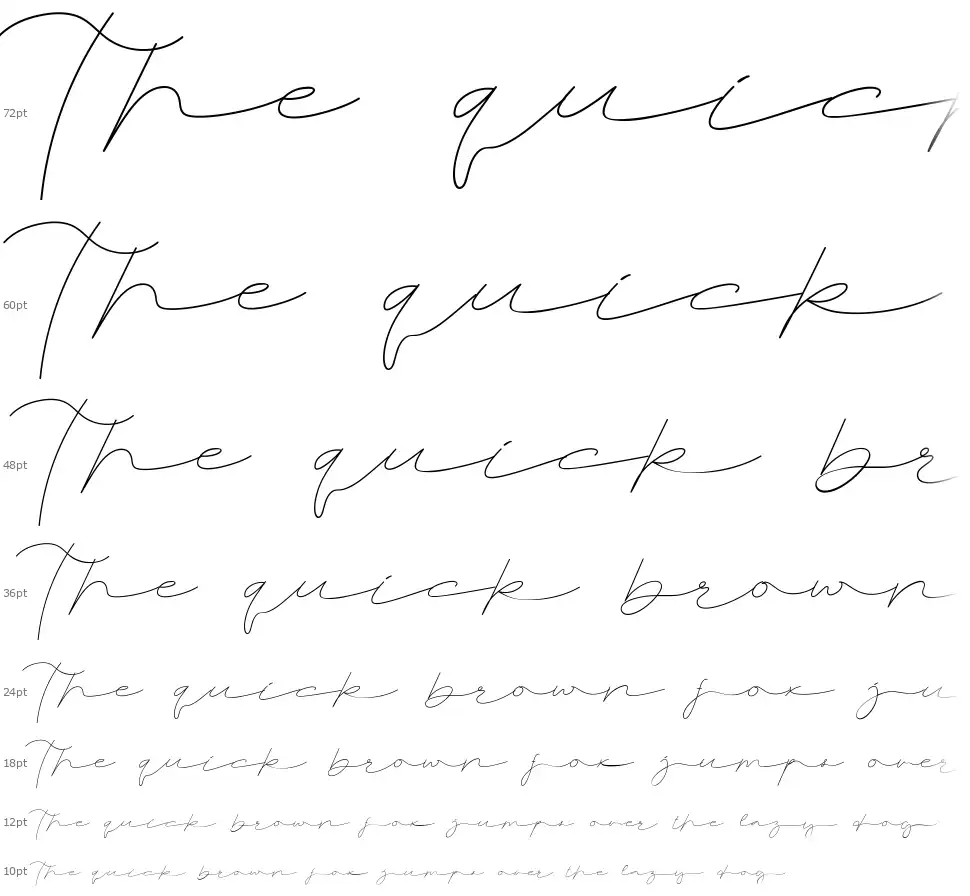 72pt The quick
60pt The quick
48pt The quick br
36pt The quick brown
24pt The quick brown fox ju
18pt The quick brown fox jumps over
12pt The quick brown fox jumps over the lazy dog
10pt The quick brown fox jumps over the lazy dog